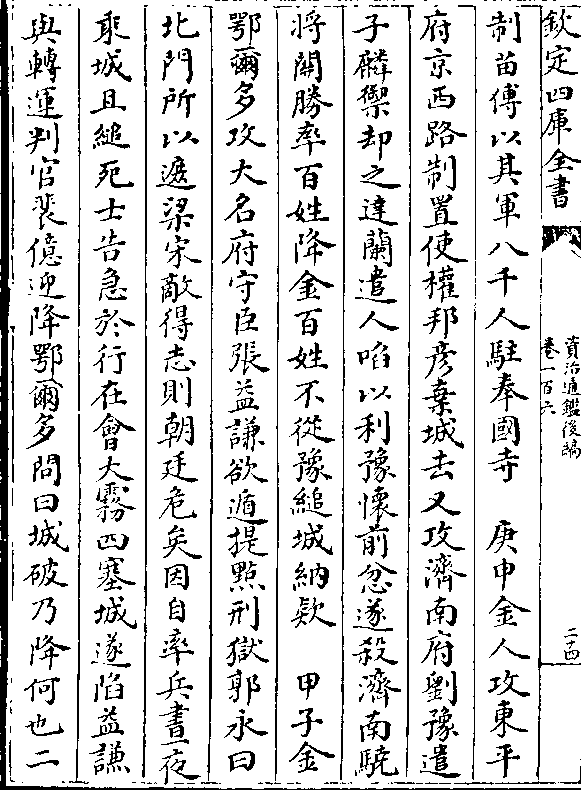 欽定四庫全書
資治通鑑後編
卷一百六
二十四
制苗傅以其軍八千人駐奉國寺　庚申金人攻東平
府京西路制置使權邦彥棄城去又攻濟南府劉豫遣
子麟禦却之達蘭遣人啗以利豫懷前忿遂殺濟南驍
將關勝率百姓降金百姓不從豫縋城納欵　甲子金
鄂爾多攻大名府守臣張益謙欲遁提點刑獄郭永曰
北門所以遮梁宋敵得志則朝廷危矣因自率兵晝夜
乘城且縋死士告急於行在會大霧四塞城遂陷益謙
與轉運判官裴億迎降鄂爾多問曰城破乃降何也二